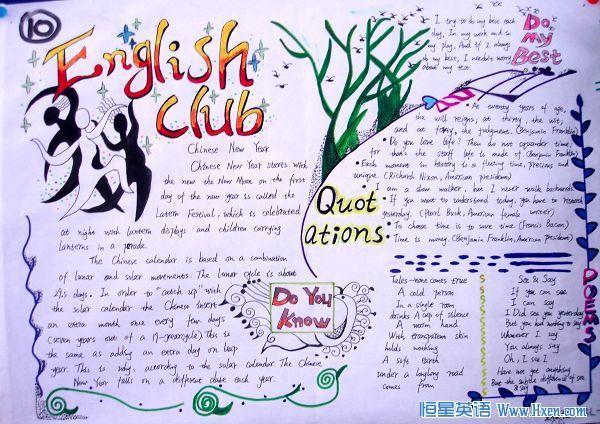 10
English
Club
Chinese New Year
Chinese New Year starts with
the new the New Moon on the first
day of the new year is called the
Latern Festival, which is celebrated
at night wish lantern displays and children carrying
lanterns in a parade.
The Chinese calendar is based on a combination
of lunar and solar movements. The lunar cycle is about
29.5 days. In order to "catch up" with
the solar calendar the Chinese insert
an extra month once every few days
(seven years out of a 19-yearcycle) This is
the same as adding an extra day on leap
year. This is why, according to the solar calendar. The Chinese
New Year falls on a different date each year.
Do You
Know
I try to do my best each
day, In my work and in
my play, And if I always
do my best, I needn't worry
about my test.
Do
My
Best
Quot
ations:
At twenty years of age,
the will reigns; at thirty, the wit;
and at forty, the judgment. (Benjamin Franklin)
Do you love life? Then do not squander time;
for that's the stuff life is made of (Benjamin Franklin)
Each moment in history is a fleeting time, precious and
unique. (Richard Nixon, American president)
I am a slow walker, but I never walk backwards.
If you want to understand today, you have to research
yesterday. (Pearl Buck, American female writer)
To choose time is to save time. (Francis Bacon)
Time is money. (Benjamin Franklin, American president)
POEMS
Tales-none comes true
A cold person
In a single room
drinks A cup of silence
A warm hand
With transparent skin
holds nothing
A soft earth
under a laughing road
comes from
See & Say
If you can see
I can say
I Did see you yesterday
But you had nothing to say
Whatever I say
You always say
Oh, I see!
Have not got anything
But the subtle difference of see
& say
恒星英语 Www.Hxen.com